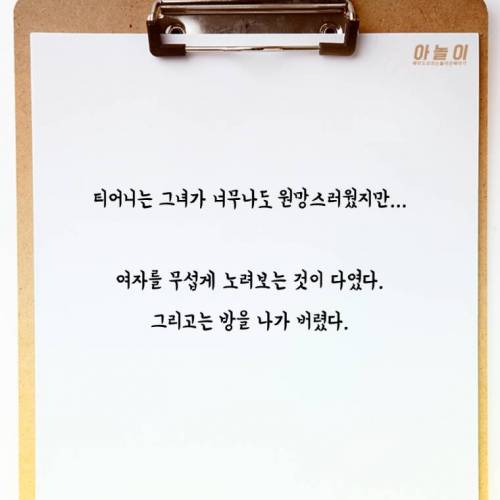 아놀이
티어니는 그녀가 너무나도 원망스러웠지만...
여자를 무섭게 노려보는 것이 다였다.
그리고는 방을 나가 버렸다.